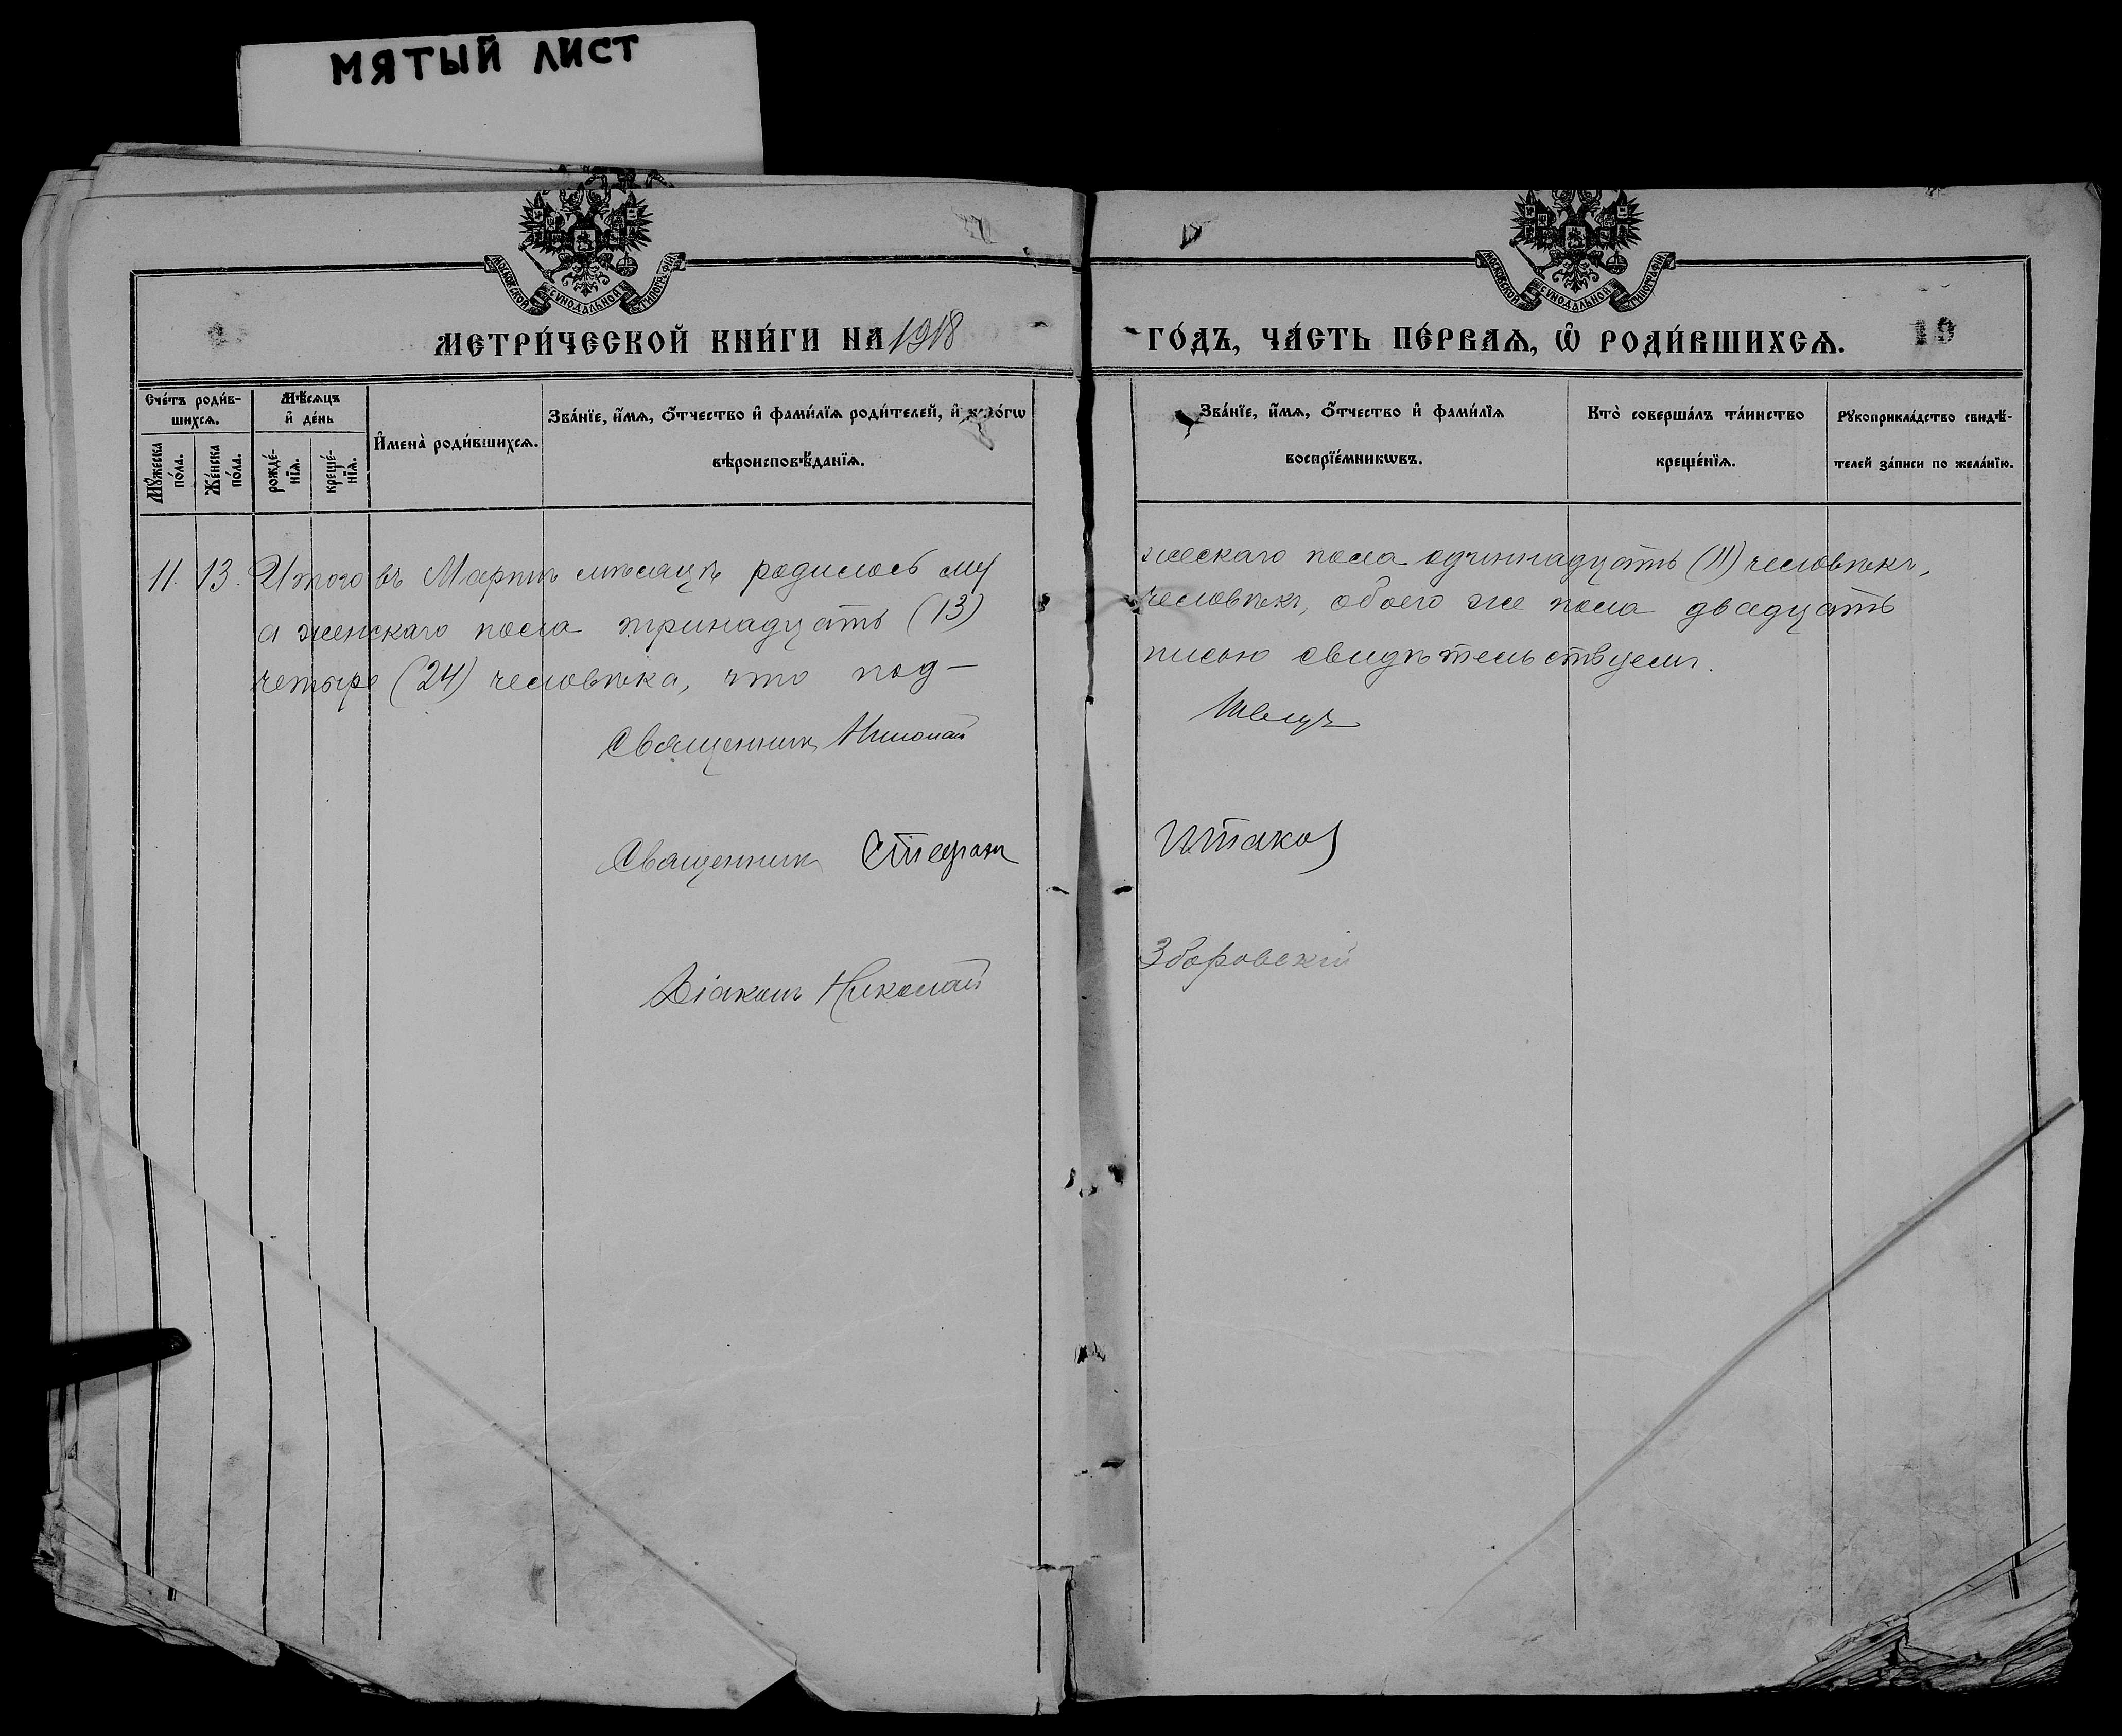 МЯТЫЙ ЛИСТ
МОСКОВСКОЙ СУНОДАЛЬНОЙ ТИПОГРАФІИ
МОСКОВСКОЙ СУНОДАЛЬНОЙ ТИПОГРАФІИ
МЕТРИ́ЧЕСКОЙ КНИ́ГИ НА 1918
ГО́ДЪ, ЧА́СТЬ ПЕ́РВАѦ, Ѽ РОДИ́ВШИХСѦ. 19
Сче́тъ роди́в-
шихсѧ.
Мꙋ́жеска
по́ла.
Же́нска
по́ла.
Мѣ́сѧцъ
и҆ де́нь
рожде́-
нїѧ.
креще́-
нїѧ.
И҆мена̀ роди́вшихсѧ.
Зва́нїе, и҆́мѧ, ѻ҆́тчество и҆ фами́лїѧ роди́телей, и҆ ко́гѡ
вѣроисповѣ́данїѧ.
Зва́нїе, и҆́мѧ, ѻ҆́тчество и҆ фами́лїѧ
воспрїе́мникѡвъ.
Кто̀ соверша́лъ та́инство
креще́нїѧ.
Рꙋкоприкла́дство свидѣ́-
телей за́писи по жела́нїю.
11. 13. Итого въ Мартѣ мѣсяцѣ родилось му
жескаго пола одиннадцать (11) человѣкъ,
а женскаго пола тринадцать (13)
человѣкъ, обоего же пола двадцать
четыре (24) человѣка, что под-
писью свидѣтельствуемъ.
Священникъ Николай Швецъ
Священникъ Стефан Итаков
Діаконъ Николай Зборовскій